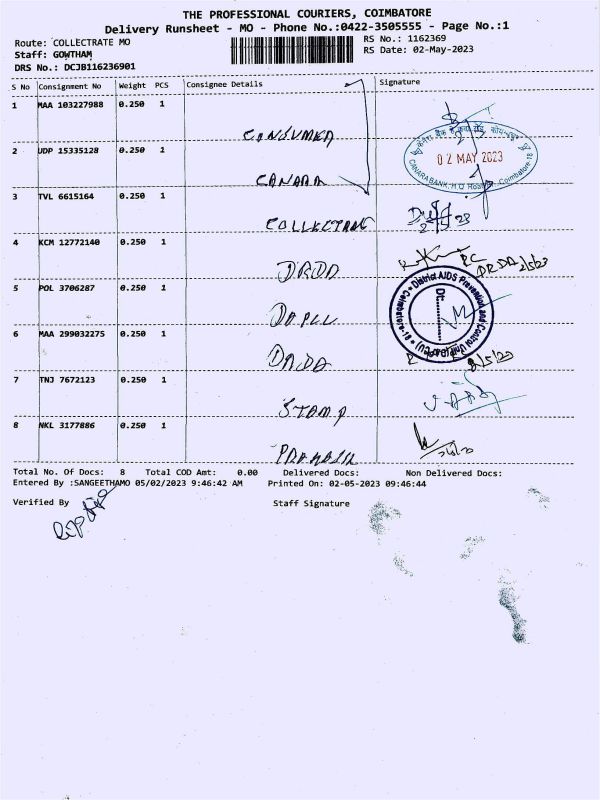 THE PROFESSIONAL COURIERS, COIMBATORE
Delivery Runsheet - MO - Phone No.:0422-3505555 - Page No.:1
Route: COLLECTRATE MO
RS No.: 1162369
Staff: GOWTHAM
RS Date: 02-May-2023
DRS No.: DCJB116236901
S No Consignment No Weight PCS Consignee Details Signature
1 MAA 103227988 0.250 1
CONSUMER
2 UDP 15335128 0.250 1
CANARA
02 MAY 2023
CANARA BANK, H.O Road, Coimbatore-18
3 TVL 6615164 0.250 1
COLLECTRATE
4 KCM 12772140 0.250 1
DRDA
DRDA 2/5/23
5 POL 3706287 0.250 1
DAPCU
District AIDS Prevention and Control Unit (DAPCU) Coimbatore-
Dt:
6 MAA 299032275 0.250 1
DRDA
2/5/23
7 TNJ 7672123 0.250 1
STAMP
8 NKL 3177886 0.250 1
Total No. Of Docs: 8 Total COD Amt: 0.00 Delivered Docs: Non Delivered Docs:
Entered By :SANGEETHAMO 05/02/2023 9:46:42 AM Printed On: 02-05-2023 09:46:44
Verified By Staff Signature